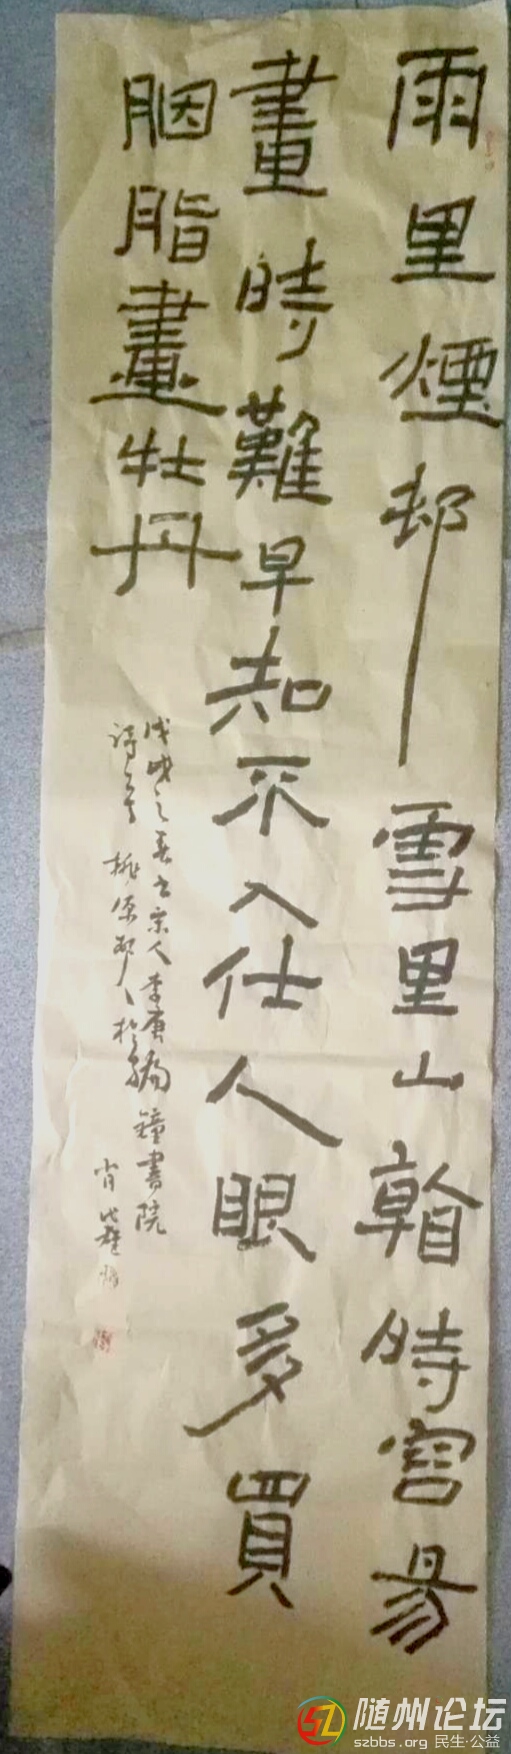 雨里煙邨雪里山看時容易
畫時難早知不入仕人眼多買
胭脂畫牡丹
戊戌之春書宋人李唐
詩一首 桃源邨人於編鐘書院
肖
随州论坛
szbbs.org 民生·公益